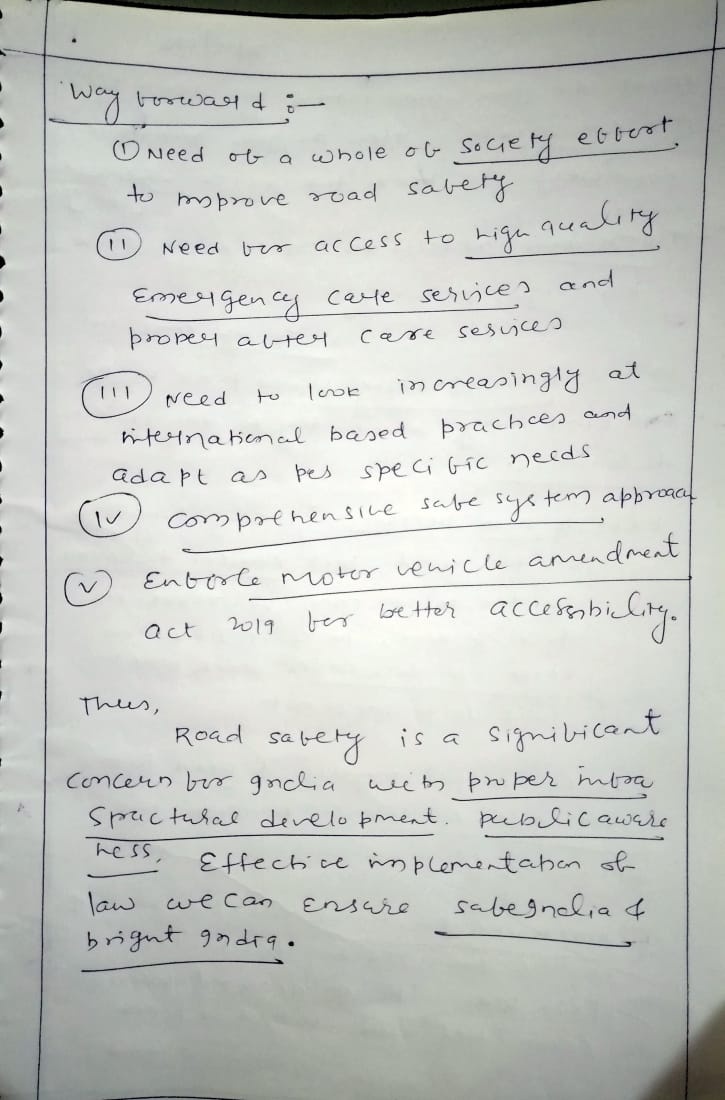 Way forward :-
(I) Need of a whole of society effort
to improve road safety
(II) Need for access to high quality
Emergency care services and
proper after care services
(III) Need to look increasingly at
international based practices and
adapt as per specific needs
(IV) comprehensive safe system approach
(V) Enforce motor vehicle amendment
act 2019 for better accessibility.
Thus,
Road safety is a significant
concern for India with proper infra
structural development. public aware
ness, Effective implementation of
law we can ensure safe India &
bright India.